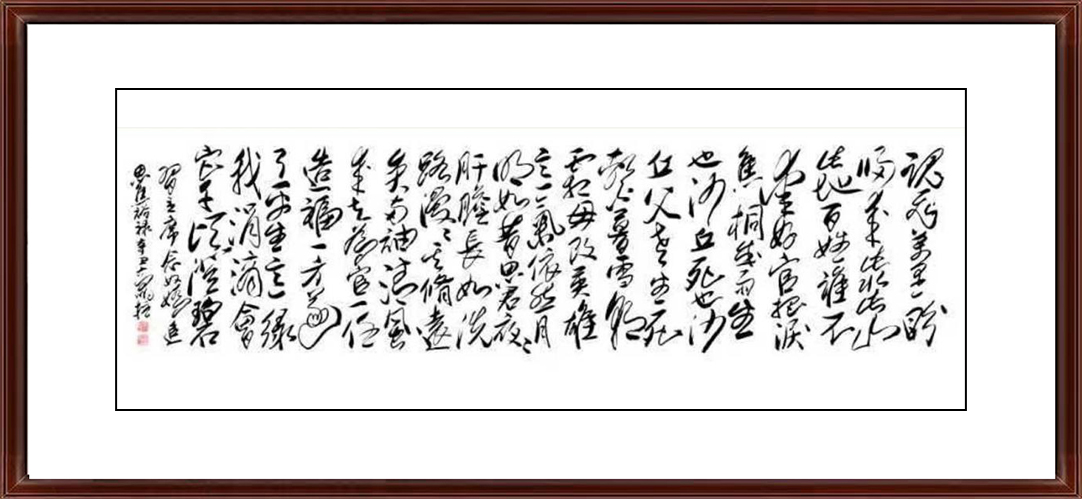 魂飞万里盼
归来此水此山
此地百姓谁不
爱好官把泪
焦桐成雨生
也沙丘死也沙
丘父老生死
系暮雪朝
霜毋改英雄
意气依然月
明如昔思君夜夜
肝膽長如洗
路漫漫其脩遠
矣両袖清風
来去為官一任
造福一方遂
了平生意緑
我涓滴會
它千顷澄碧
習主席念奴嬌追
思焦裕禄辛丑